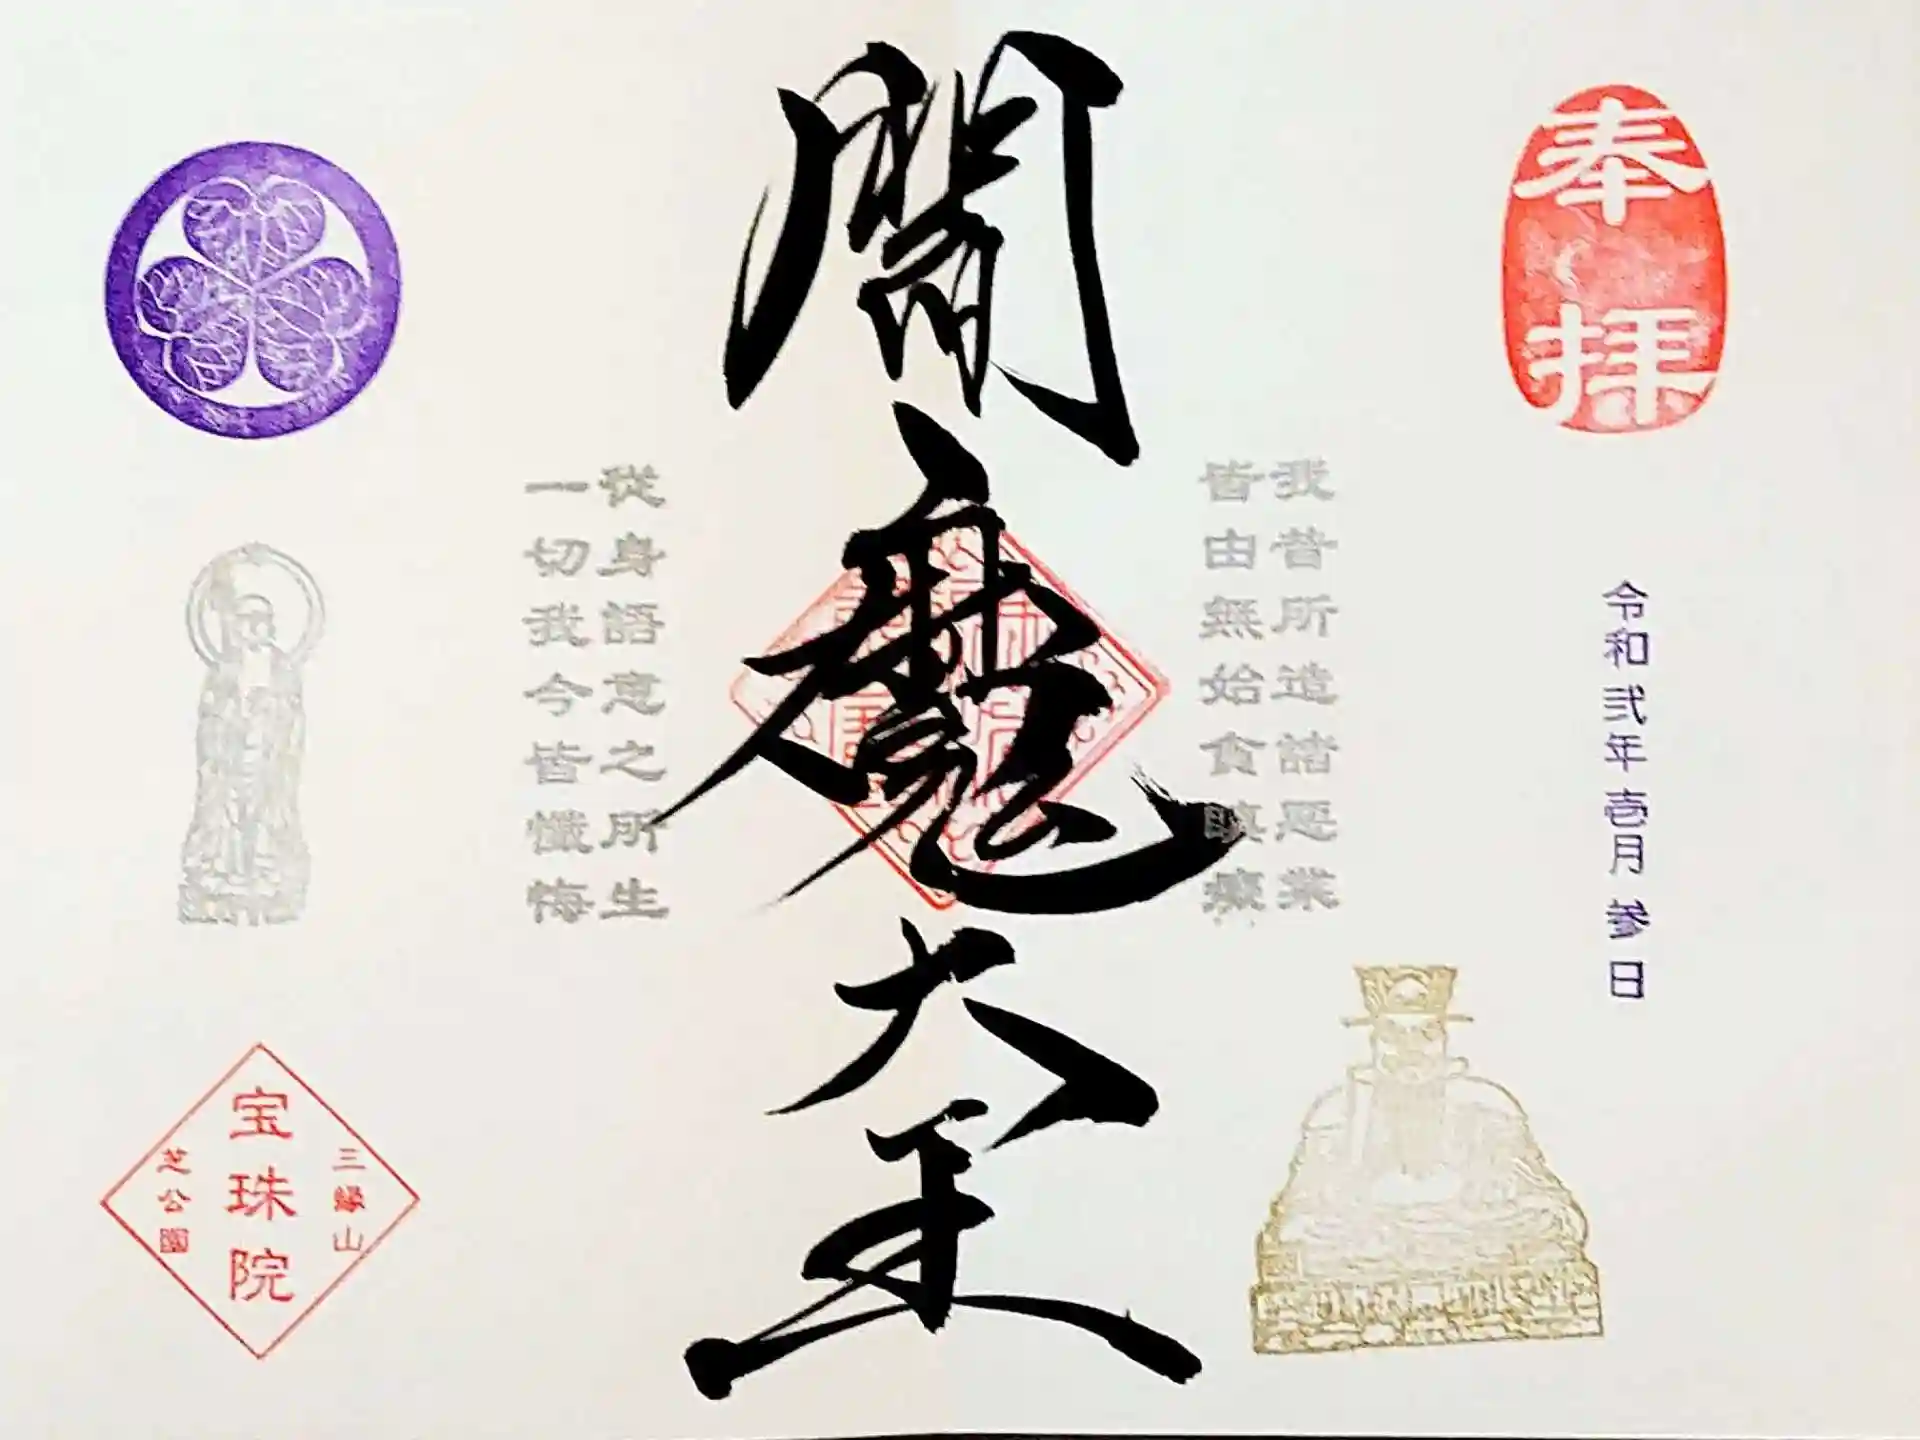 奉拝
令和弐年壱月参日
我昔所造諸悪業
皆由無始貪瞋癡
閻魔大王
従身語意之所生
一切我今皆懺悔
三縁山
宝珠院
芝公園